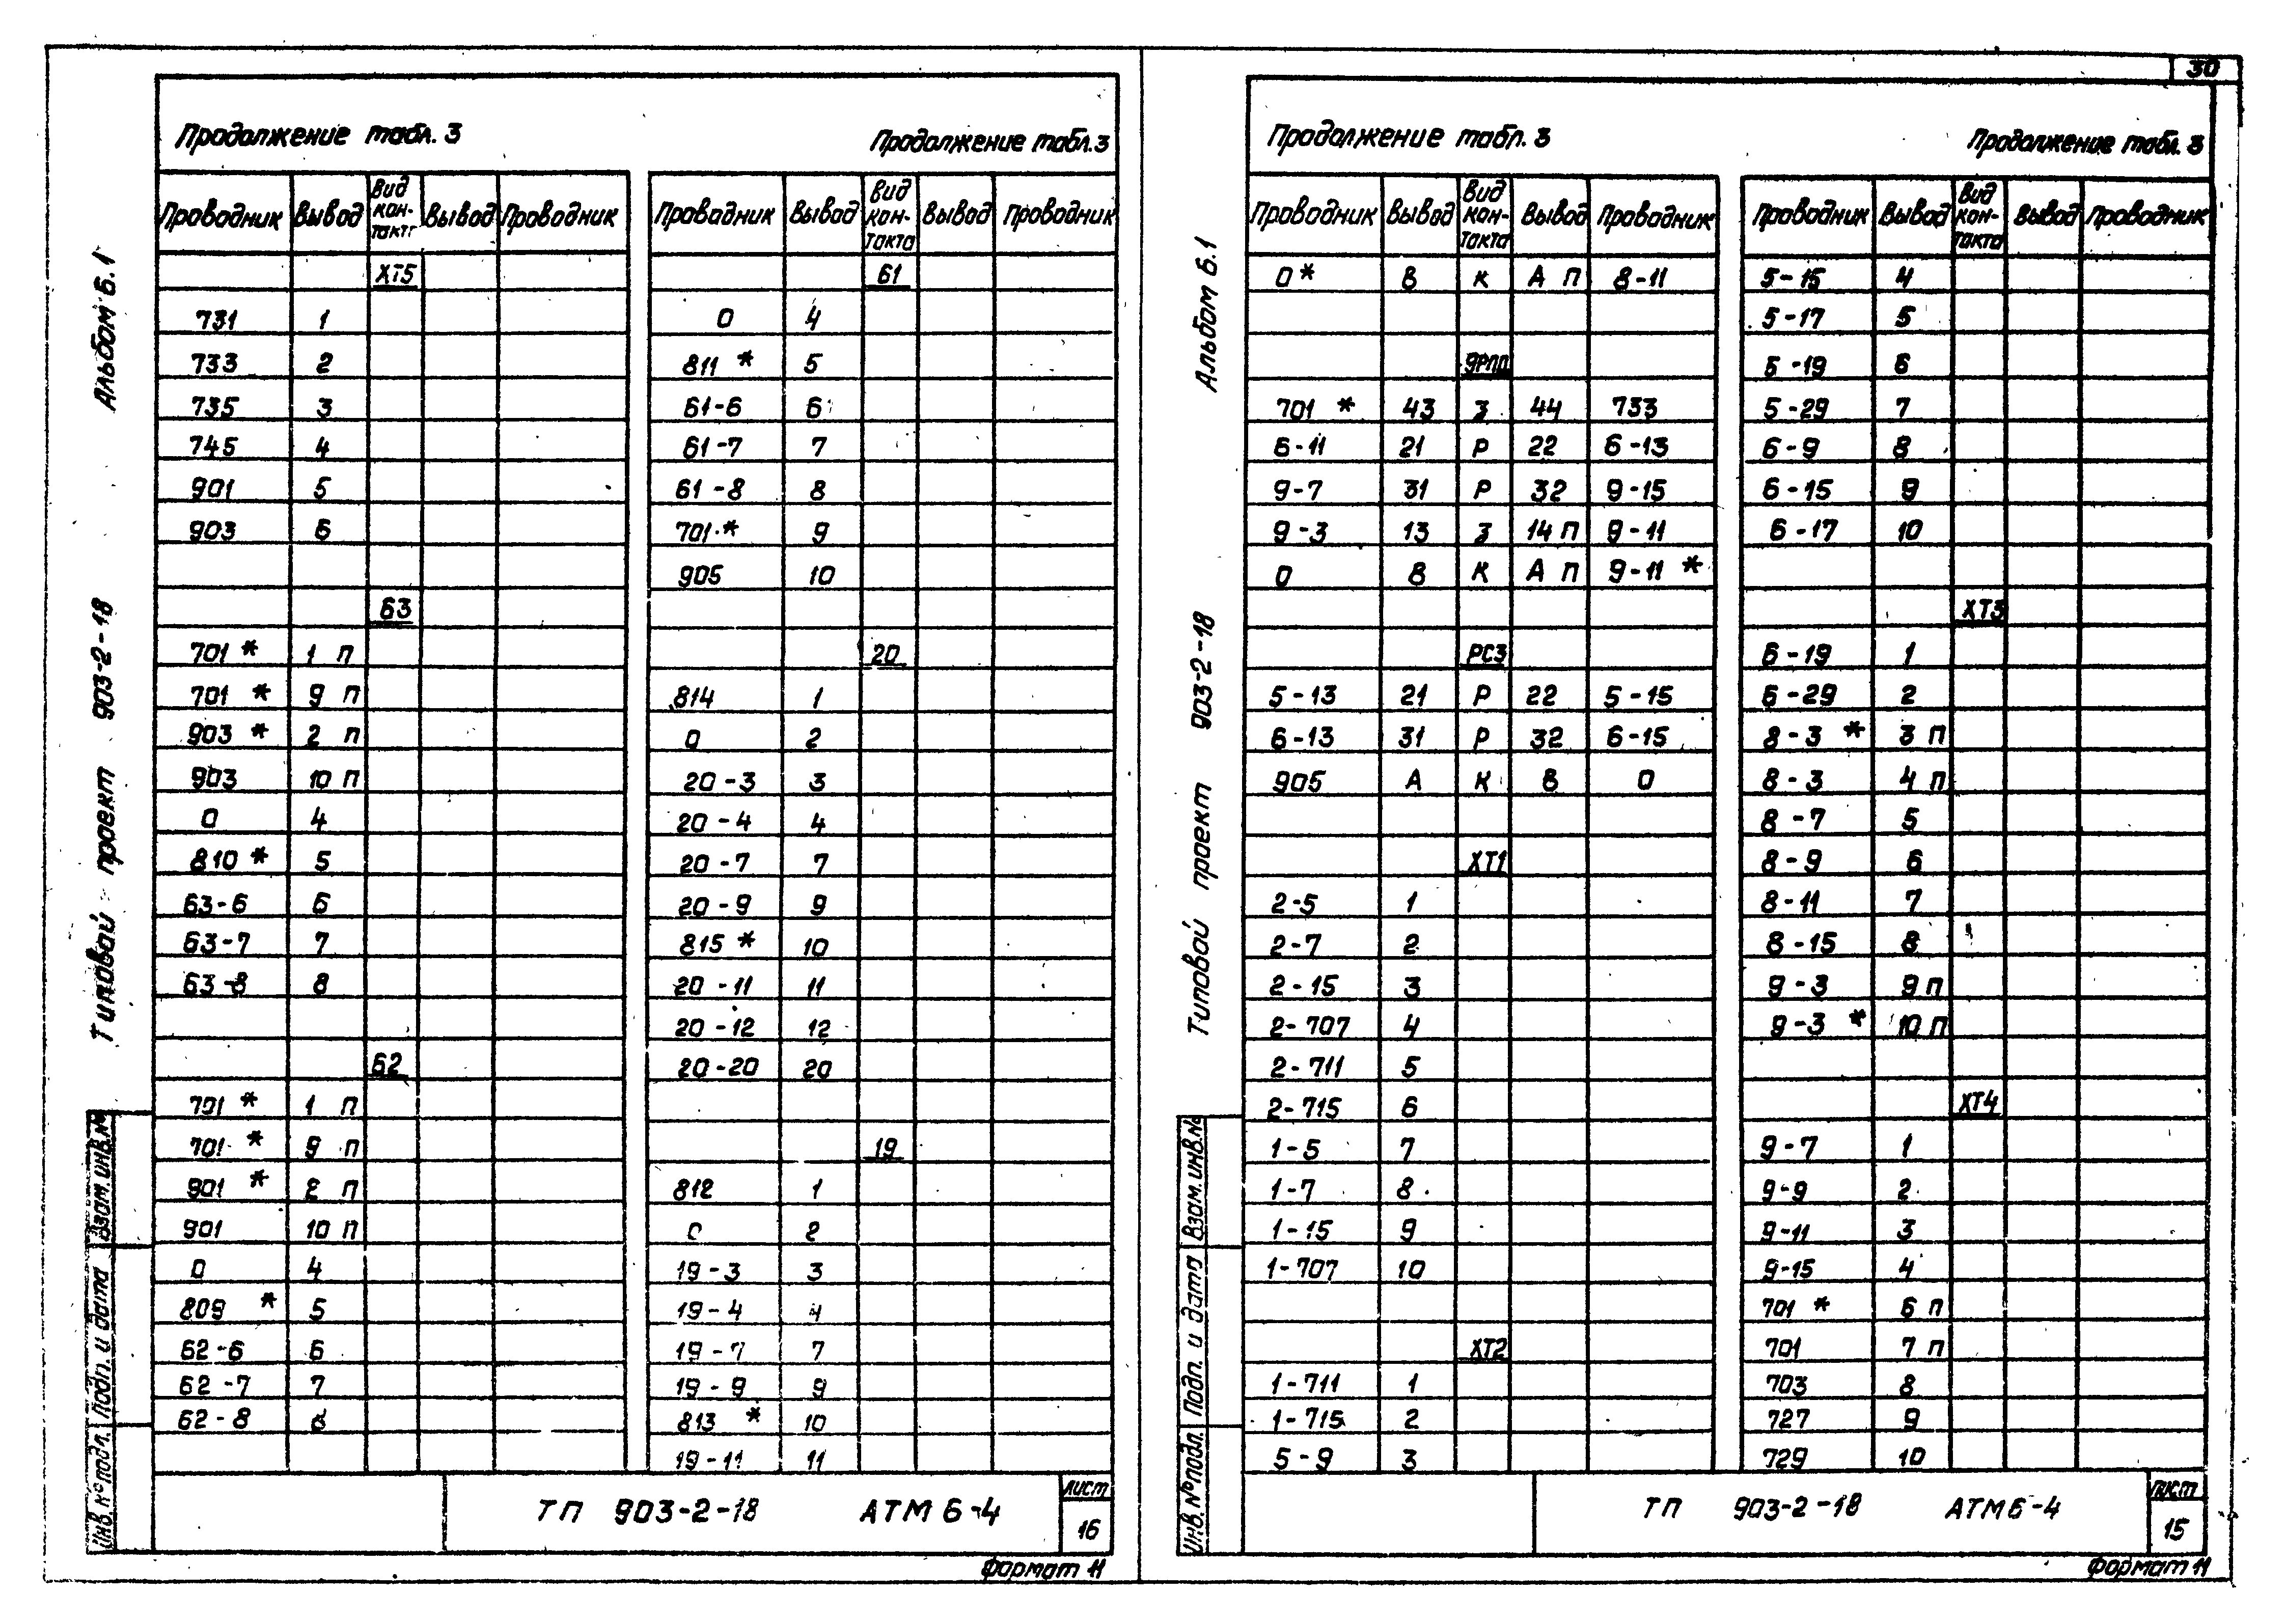 30
Продолжение табл. 3
Продолжение табл.3
Проводник Вывод Вид кон- Вывод Проводник
ХТ5
731 1
733 2
735 3
745 4
901 5
903 6
63
701 * 1 П
701 * 9 П
903 * 2 П
903 10 П
0 4
810 * 5
63-6 6
63-7 7
63-8 8
62
701 * 1 П
701 * 9 П
901 * 2 П
901 10 П
0 4
809 * 5
62-6 6
62-7 7
62-8 8
Проводник Вывод Вид кон- такта Вывод Проводник
61
0 4
811 * 5
61-6 6
61-7 7
61-8 8
701 * 9
905 10
20
814 1
0 2
20-3 3
20-4 4
20-7 7
20-9 9
815 * 10
20-11 11
20-12 12
20-20 20
19
812 1
0 2
19-3 3
19-4 4
19-7 7
19-9 9
813 * 10
19-11 11
ТП 903-2-18 АТМ6-4
Лист
16
Формат 11
Альбом 6.1
Типовой проект 903-2-18
Инв.№подл. Подп. и дата Взам.инв.№
Продолжение табл. 3
Продолжение табл. 3
Проводник Вывод Вид кон- такта Вывод Проводник
0* В К А П 8-11
9РПП
701 * 43 З 44 733
6-11 21 Р 22 6-13
9-7 31 Р 32 9-15
9-3 13 З 14 П 9-11
0 В К А П 9-11 *
РС3
5-13 21 Р 22 5-15
6-13 31 Р 32 6-15
905 А К В 0
ХТ1
2-5 1
2-7 2
2-15 3
2-707 4
2-711 5
2-715 6
1-5 7
1-7 8
1-15 9
1-707 10
ХТ2
1-711 1
1-715 2
5-9 3
Проводник Вывод Вид кон- такта Вывод Проводник
5-15 4
5-17 5
5-19 6
5-29 7
6-9 8
6-15 9
6-17 10
ХТ3
6-19 1
6-29 2
8-3 * 3 П
8-3 4 П
8-7 5
8-9 6
8-11 7
8-15 8
9-3 9 П
9-3 * 10 П
ХТ4
9-7 1
9-9 2
9-11 3
9-15 4
701 * 6 П
701 7 П
703 8
727 9
729 10
ТП 903-2-18 АТМ6-4
Лист
15
Формат 11
Альбом 6.1
Типовой проект 903-2-18
Инв.№подл. Подп. и дата Взам.инв.№